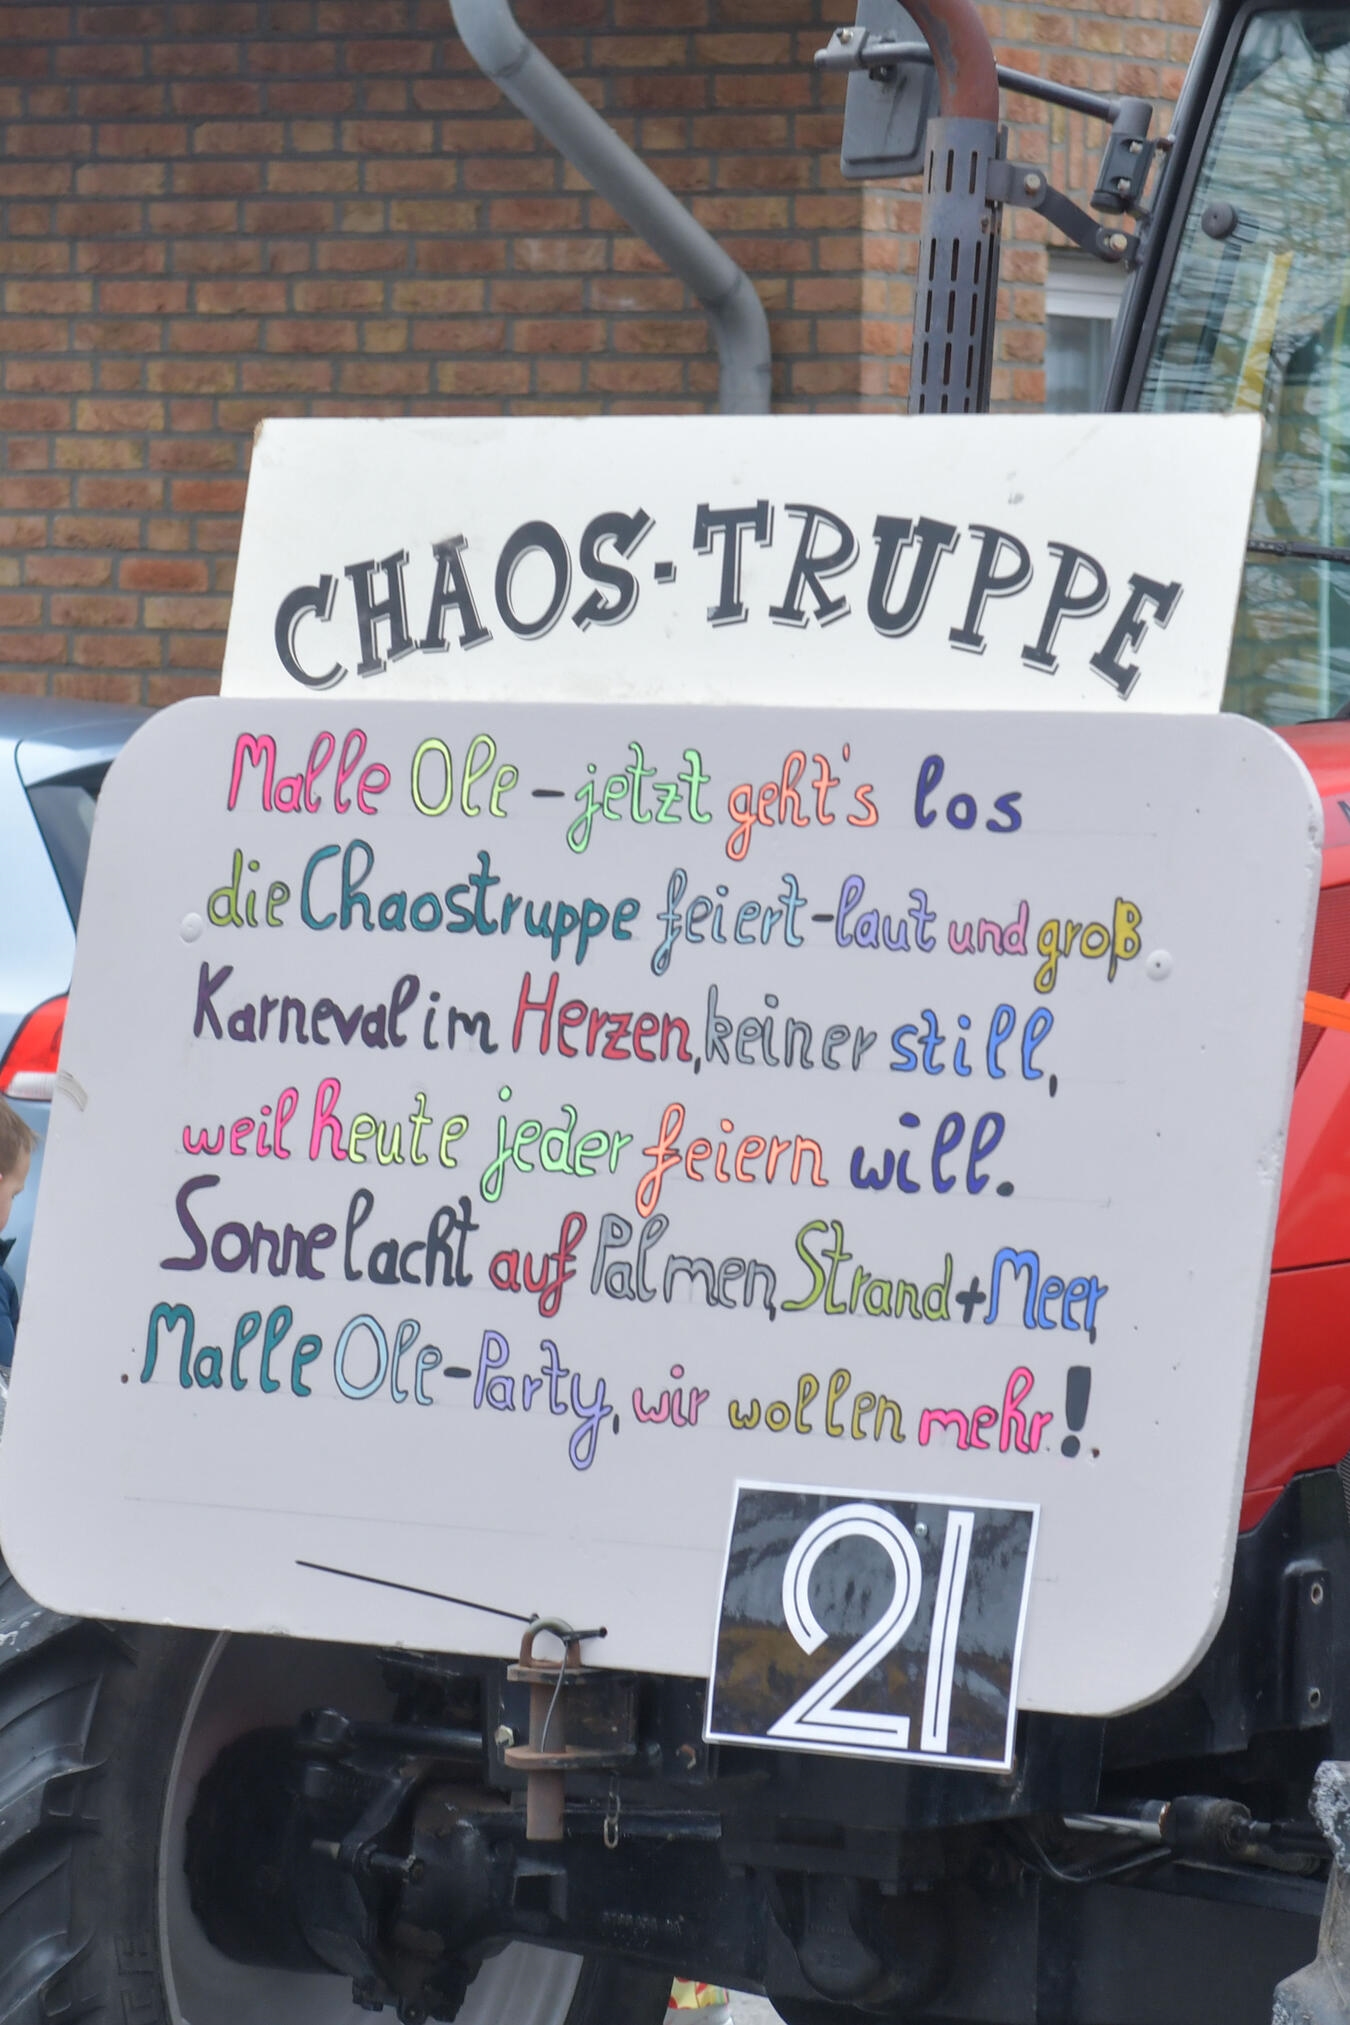 CHAOS-TRUPPE
Malle Ole - jetzt geht's los
die Chaostruppe feiert - laut und groß
Karneval im Herzen, keiner still,
weil heute jeder feiern will.
Sonne lacht auf Palmen, Strand + Meer,
Malle Ole - Party, wir wollen mehr!
21